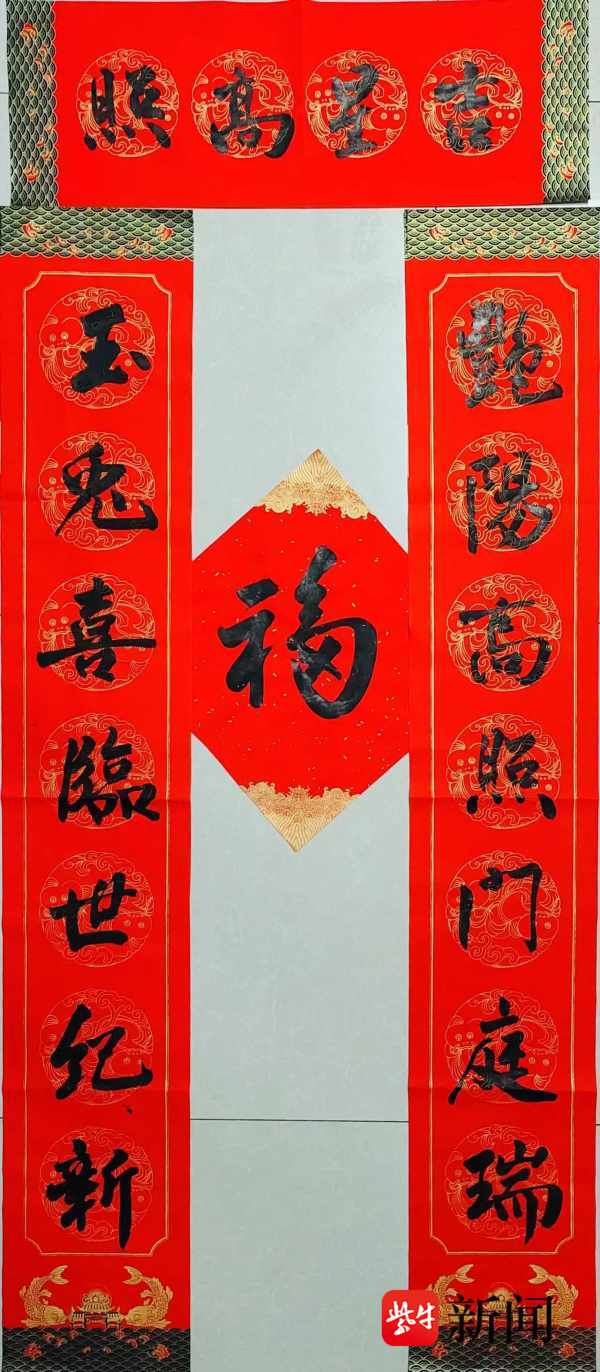 吉星高照
艷陽高照门庭瑞
玉兔喜臨世纪新
福
紫牛新闻